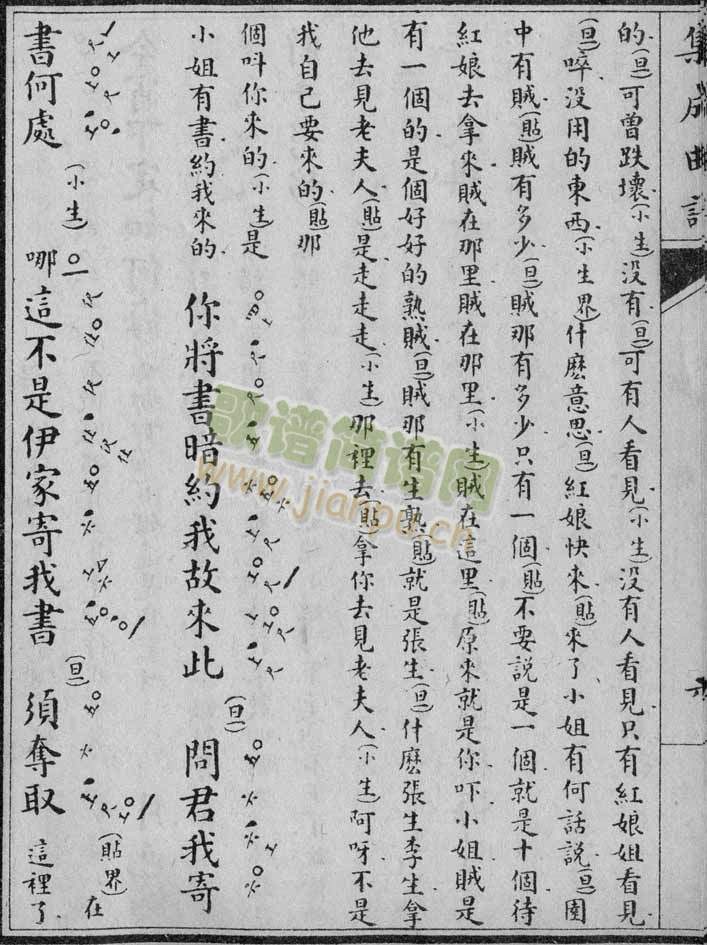 集成曲譜
的(旦)可曾跌壞(小生)没有(旦)可有人看見(小生)没有人看見只有紅娘姐看見
(旦)啐没用的東西(小生界)什麽意思(旦)紅娘快來(貼)來了小姐有何話說(旦)園
中有賊(貼)賊有多少(旦)賊那有多少只有一個(貼)不要説是一個就是十個待
紅娘去拿來賊在那里賊在那里(小生)賊在這里(貼)原來就是你吓小姐賊是
有一個的是個好好的熟賊(旦)賊那有生熟(貼)就是張生(旦)什麽張生李生拿
他去見老夫人(貼)是走走走(小生)那裡去(貼)拿你去見老夫人(小生)阿呀不是
我自己要來的(貼)那
個呌你來的(小生)是
小姐有書約我來的
你將書暗約我故來此(旦)問君我寄
書何處(小生)哪這不是伊家寄我書(旦)須奪取(貼界)在
這裡了
歌谱简谱网
www.jianpu.cn